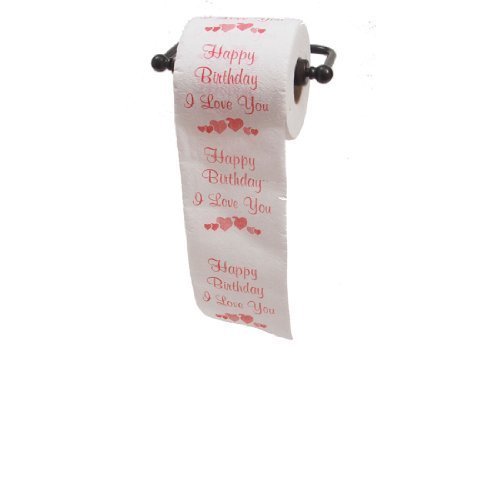 I Love You
Happy
Birthday
I Love You
Happy
Birthday
I Love You
Happy
Birthday
I Love You